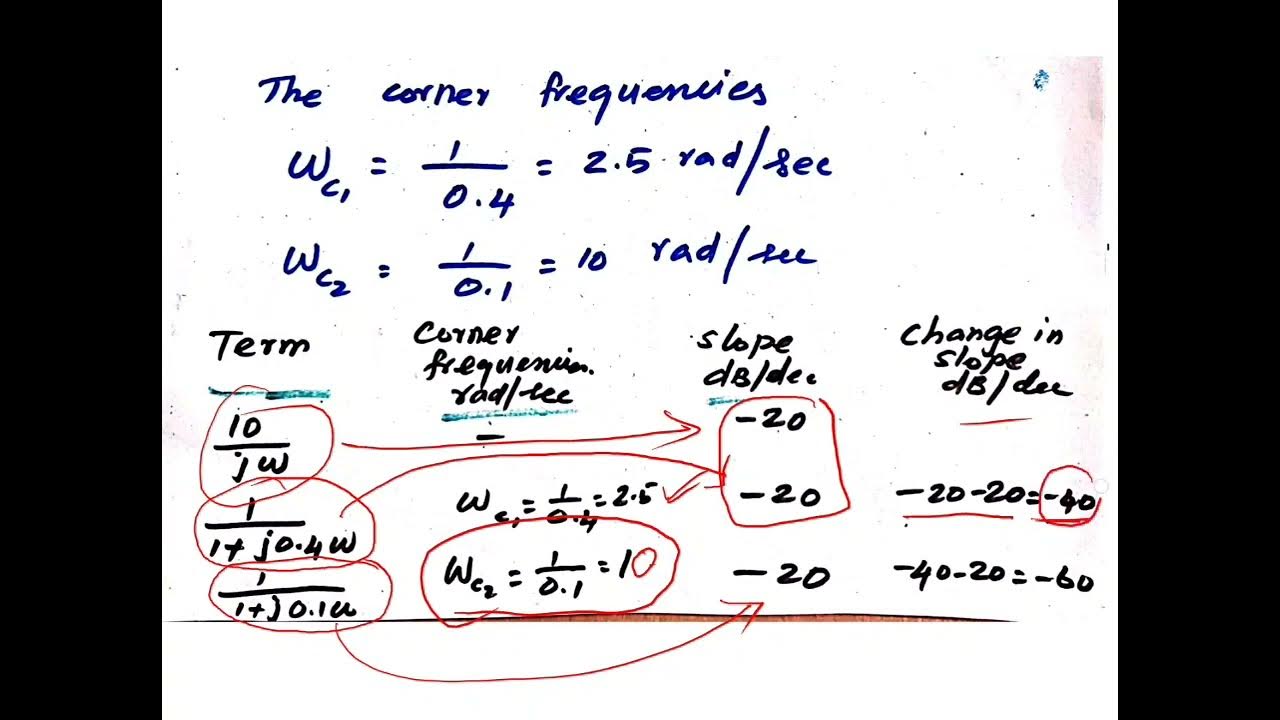 The corner frequencies
Wc₁ = 1/0.4 = 2.5 rad/sec
Wc₂ = 1/0.1 = 10 rad/sec
Term Corner frequencies. rad/sec slope dB/dec change in slope dB/dec
10/jw - -20
1/1+j0.4w Wc₁ = 1/0.4 = 2.5 -20 -20-20=-40
1/1+j0.1w Wc₂ = 1/0.1 = 10 -20 -40-20=-60